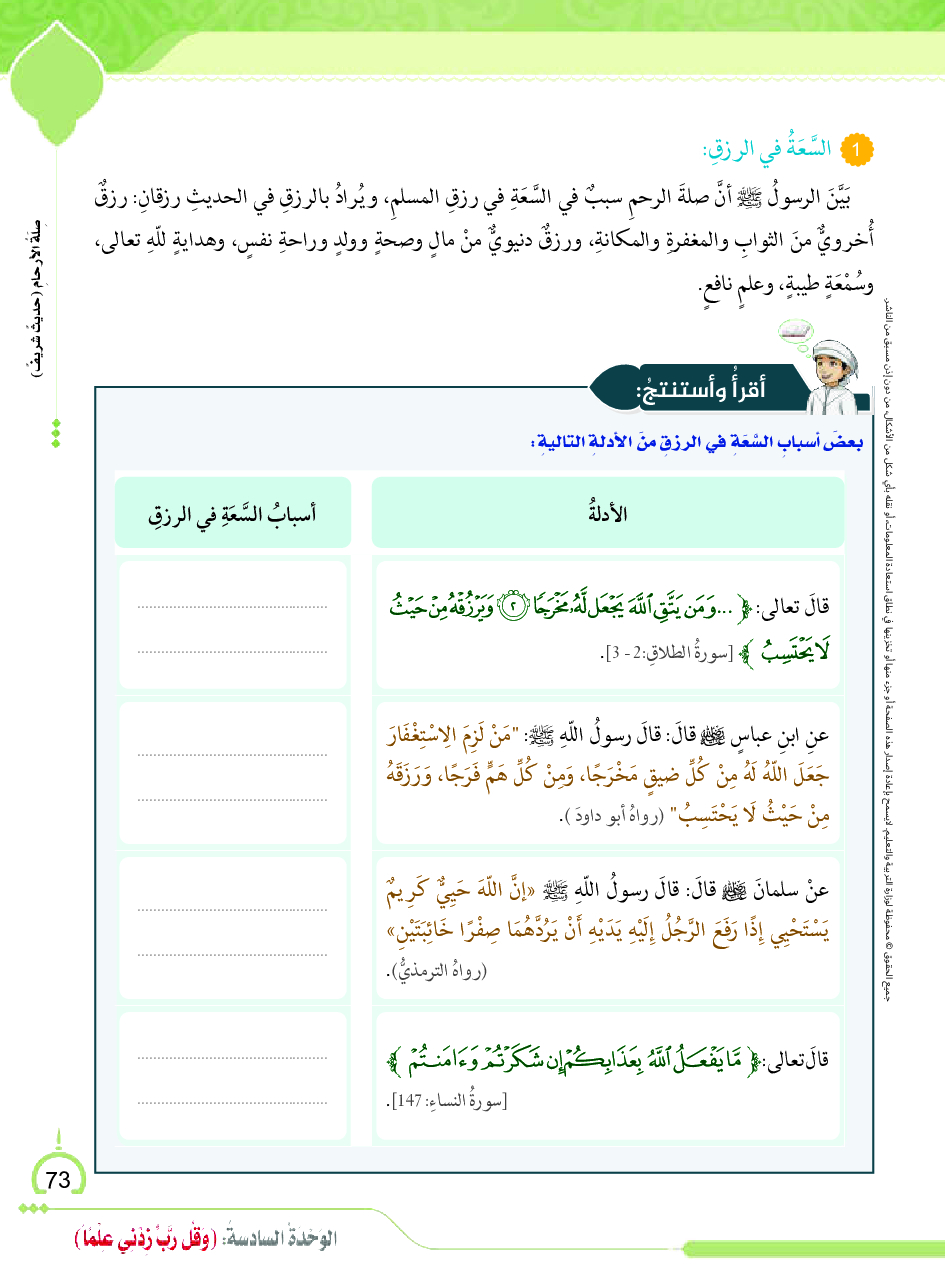 1 السَّعَةُ في الرزقِ:
بَيَّنَ الرسولُ ﷺ أنَّ صلةَ الرحمِ سببٌ في السَّعَةِ في رزقِ المسلمِ، ويُرادُ بالرزقِ في الحديثِ رزقان: رزقٌ
أُخرويٌّ منَ الثوابِ والمغفرةِ والمكانةِ، ورزقٌ دنيويٌّ منْ مالٍ وصحةٍ وولدٍ وراحةِ نفسٍ، وهدايةٍ للّهِ تعالى،
وسُمْعَةٍ طيبةٍ، وعلمٍ نافعٍ.
صِلَةُ الأرحامِ (حديثٌ شريفٌ)
أقرأُ وأستنتجُ:
بعضَ أسبابِ السَّعَةِ في الرزقِ منَ الأدلةِ التاليةِ:
الأدلةُ
أسبابُ السَّعَةِ في الرزقِ
قالَ تعالى: ﴿ ...وَمَن يَتَّقِ ٱللَّهَ يَجۡعَل لَّهُۥ مَخۡرَجٗا ٢ وَيَرۡزُقۡهُ مِنۡ حَيۡثُ
لَا يَحۡتَسِبُ ﴾ [سورةُ الطلاقِ:2 - 3].
عنِ ابنِ عباسٍ ﷺ قالَ: قالَ رسولُ اللّهِ ﷺ: "مَنْ لَزِمَ الِاسْتِغْفَارَ
جَعَلَ اللّهُ لَهُ مِنْ كُلِّ ضيقٍ مَخْرَجًا، وَمِنْ كُلِّ هَمٍّ فَرَجًا، وَرَزَقَهُ
مِنْ حَيْثُ لَا يَحْتَسِبُ" (رواهُ أبو داودَ ).
عنْ سلمانَ ﷺ قالَ: قالَ رسولُ اللّهِ ﷺ «إنَّ اللّهَ حَيِيٌّ كَرِيمٌ
يَسْتَحْيِي إذًا رَفَعَ الرَّجُلُ إلَيْهِ يَدَيْهِ أَنْ يَرُدَّهُمَا صِفْرًا خَائِبَتَيْنِ»
(رواهُ الترمذيُّ).
قالَ تعالى:﴿ مَّا يَفۡعَلُ ٱللَّهُ بِعَذَابِكُمۡ إِن شَكَرۡتُمۡ وَءَامَنتُمۡ ﴾
[سورةُ النساءِ: 147].
جميع الحقوق © محفوظة لوزارة التربية والتعليم. لايسمح بإعادة إصدار هذه الصفحة أو جزء منها أو تخزينها في نطاق استعادة المعلومات، أو نقله بأي شكل من الأشكال، من دون إذن مسبق من الناشر.
73
الوَحْدَةُ السادسةُ: (وَقُل رَّبِّ زِدْنِي عِلْمًا)